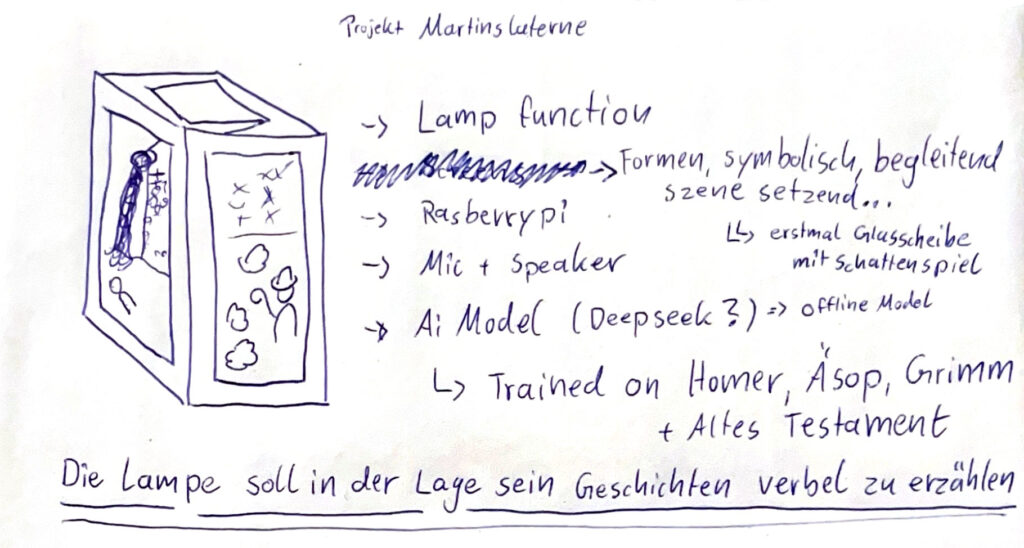 Projekt Martinslaterne
-> Lamp function
-> Formen, symbolisch, begleitend
szene setzend...
↳ erstmal Glasscheibe
mit Schattenspiel
-> Rasberrypi
-> Mic + Speaker
-> Ai Model (Deepseek?) => offline Model
↳ Trained on Homer, Äsop, Grimm
+ Altes Testament
Die Lampe soll in der Lage sein Geschichten verbel zu erzählen